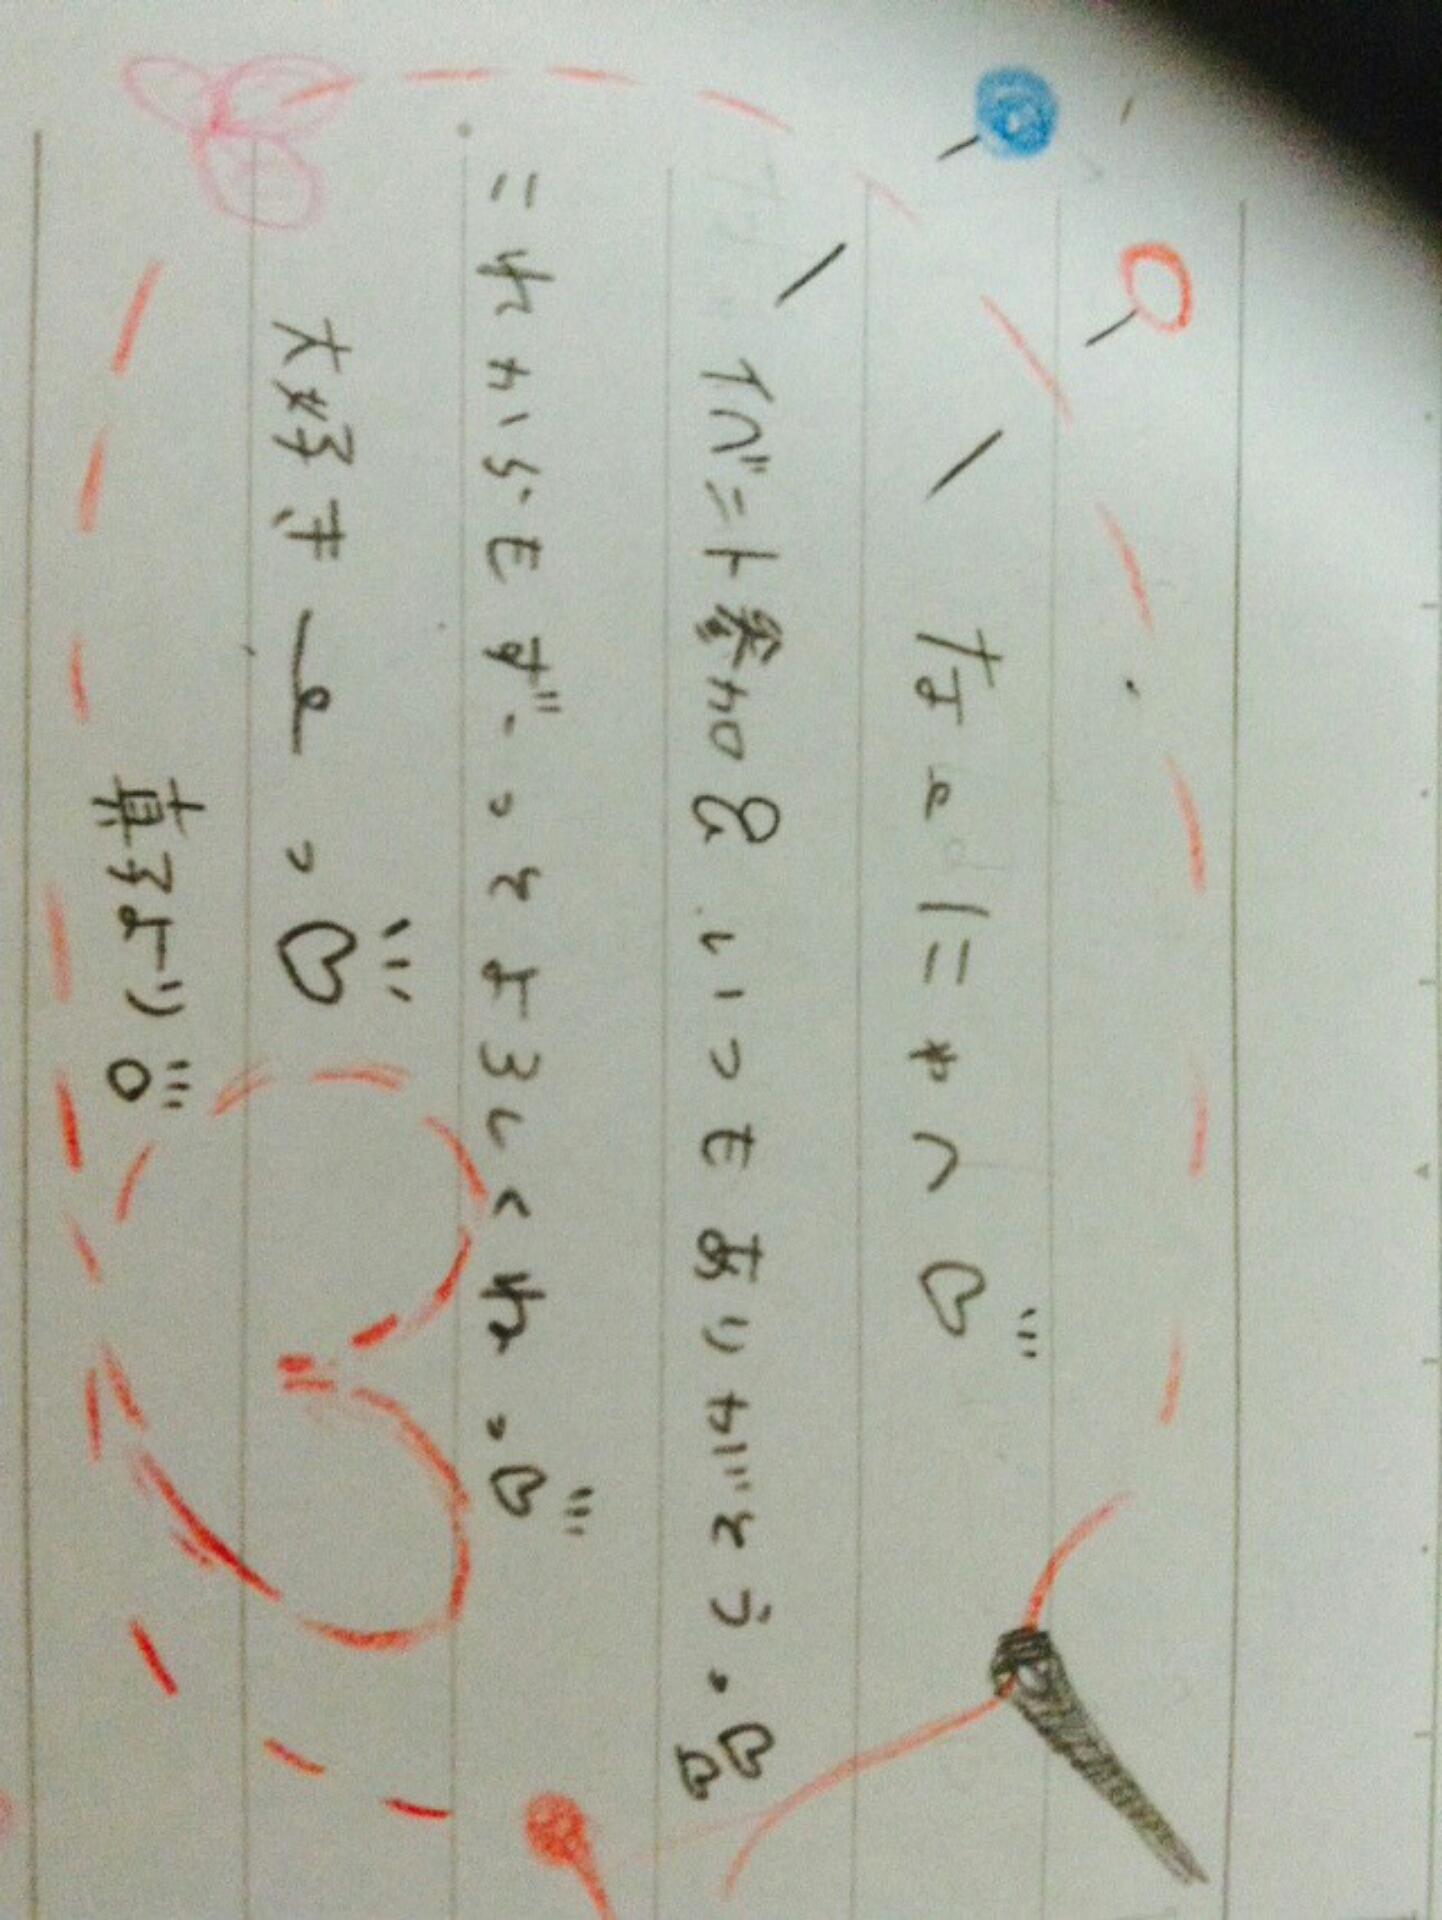 にゃん♡
イベント参加&いつもありがとう。♡♡
これからもずーっとよろしくね。♡
大好きっ♡
真子より